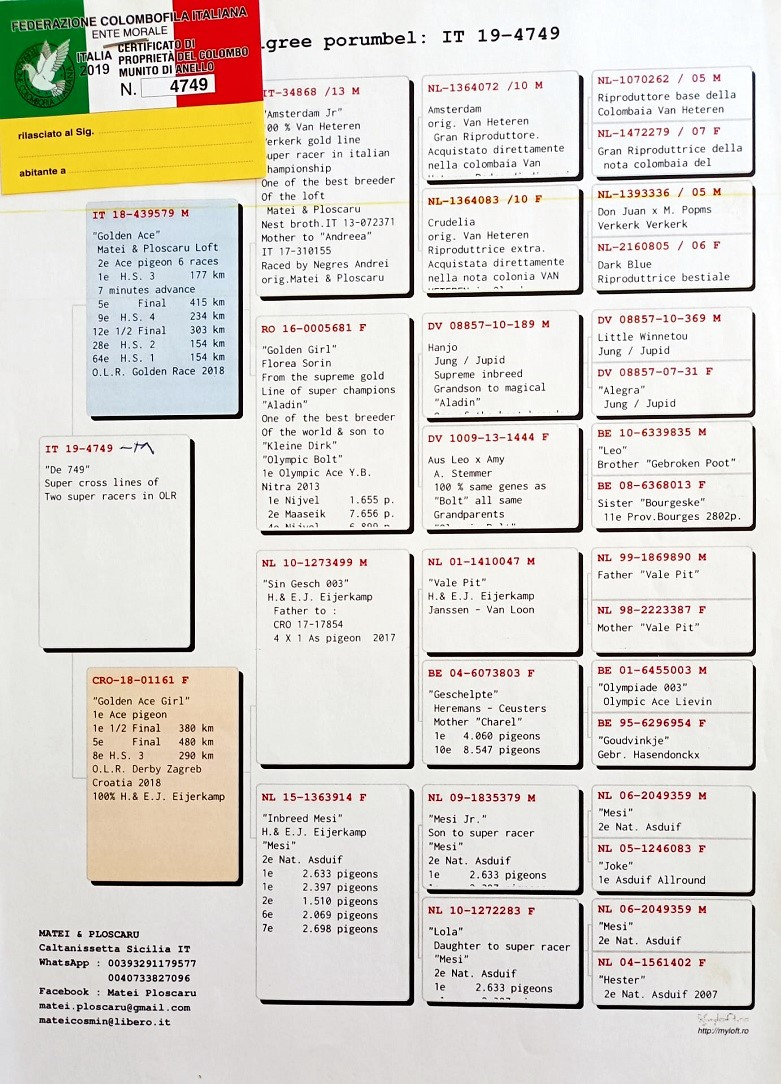 FEDERAZIONE COLOMBOFILA ITALIANA
ENTE MORALE
ITALIA
2019
CERTIFICATO DI
PROPRIETÀ DEL COLOMBO
MUNITO DI ANELLO
N. 4749
rilasciato al Sig.
abitante a
igree porumbel: IT 19-4749
IT 19-4749
"De 749"
Super cross lines of
Two super racers in OLR
IT 18-439579 M
"Golden Ace"
Matei & Ploscaru Loft
2e Ace pigeon 6 races
1e H.S. 3 177 km
7 minutes advance
5e Final 415 km
9e H.S. 4 234 km
12e 1/2 Final 303 km
28e H.S. 2 154 km
64e H.S. 1 154 km
O.L.R. Golden Race 2018
CRO-18-01161 F
"Golden Ace Girl"
1e Ace pigeon
1e 1/2 Final 380 km
5e Final 480 km
8e H.S. 3 290 km
O.L.R. Derby Zagreb
Croatia 2018
100% H.& E.J. Eijerkamp
IT-34868 /13 M
"Amsterdam Jr"
00 % Van Heteren
erkerk gold line
uper racer in italian
hampionship
One of the best breeder
Of the loft
Matei & Ploscaru
Nest broth.IT 13-072371
Mother to "Andreea"
IT 17-310155
Raced by Negres Andrei
orig.Matei & Ploscaru
RO 16-0005681 F
"Golden Girl"
Florea Sorin
From the supreme gold
Line of super champions
"Aladin"
One of the best breeder
Of the world & son to
"Kleine Dirk"
"Olympic Bolt"
1e Olympic Ace Y.B.
Nitra 2013
1e Nijvel 1.655 p.
2e Maaseik 7.656 p.
NL 10-1273499 M
"Sin Gesch 003"
H.& E.J. Eijerkamp
Father to :
CRO 17-17854
4 X 1 As pigeon 2017
NL 15-1363914 F
"Inbreed Mesi"
H.& E.J. Eijerkamp
"Mesi"
2e Nat. Asduif
1e 2.633 pigeons
1e 2.397 pigeons
2e 1.510 pigeons
6e 2.069 pigeons
7e 2.698 pigeons
NL-1364072 /10 M
Amsterdam
orig. Van Heteren
Gran Riproduttore.
Acquistato direttamente
nella colombaia Van
NL-1364083 /10 F
Crudelia
orig. Van Heteren
Riproduttrice extra.
Acquistata direttamente
nella nota colonia VAN
DV 08857-10-189 M
Hanjo
Jung / Jupid
Supreme inbreed
Grandson to magical
"Aladin"
DV 1009-13-1444 F
Aus Leo x Amy
A. Stemmer
100 % same genes as
"Bolt" all same
Grandparents
NL 01-1410047 M
"Vale Pit"
H.& E.J. Eijerkamp
Janssen - Van Loon
BE 04-6073803 F
"Geschelpte"
Heremans - Ceusters
Mother "Charel"
1e 4.060 pigeons
10e 8.547 pigeons
NL 09-1835379 M
"Mesi Jr."
Son to super racer
"Mesi"
2e Nat. Asduif
1e 2.633 pigeons
NL 10-1272283 F
"Lola"
Daughter to super racer
"Mesi"
2e Nat. Asduif
1e 2.633 pigeons
NL-1070262 / 05 M
Riproduttore base della
Colombaia Van Heteren
NL-1472279 / 07 F
Gran Riproduttrice della
nota colombaia del
NL-1393336 / 05 M
Don Juan x M. Popms
Verkerk Verkerk
NL-2160805 / 06 F
Dark Blue
Riproduttrice bestiale
DV 08857-10-369 M
Little Winnetou
Jung / Jupid
DV 08857-07-31 F
"Alegra"
Jung / Jupid
BE 10-6339835 M
"Leo"
Brother "Gebroken Poot"
BE 08-6368013 F
Sister "Bourgeske"
11e Prov.Bourges 2802p.
NL 99-1869890 M
Father "Vale Pit"
NL 98-2223387 F
Mother "Vale Pit"
BE 01-6455003 M
"Olympiade 003"
Olympic Ace Lievin
BE 95-6296954 F
"Goudvinkje"
Gebr. Hasendonckx
NL 06-2049359 M
"Mesi"
2e Nat. Asduif
NL 05-1246083 F
"Joke"
1e Asduif Allround
NL 06-2049359 M
"Mesi"
2e Nat. Asduif
NL 04-1561402 F
"Hester"
2e Nat. Asduif 2007
MATEI & PLOSCARU
Caltanissetta Sicilia IT
WhatsApp : 00393291179577
0040733827096
Facebook : Matei Ploscaru
matei.ploscaru@gmail.com
mateicosmin@libero.it
http://myloft.ro